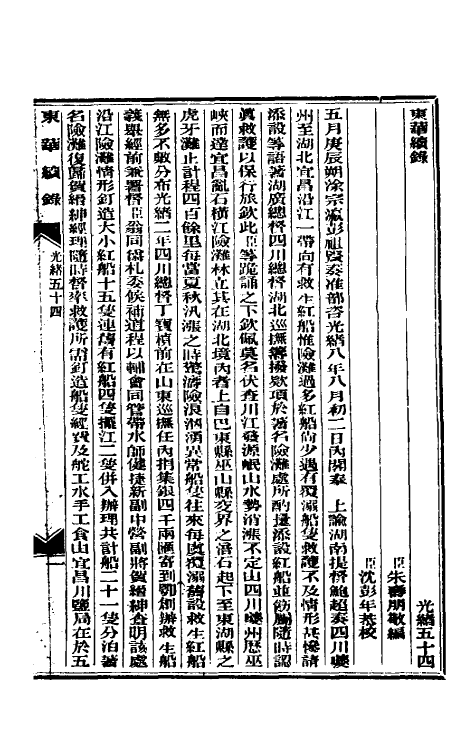 東華續錄
光緒五十四
臣朱壽朋敬編
臣沈彭年恭校
五月庚辰朔涂宗瀛彭祖賢奏准部咨光緒八年八月初二日內閣奉　上諭湖南提督鮑超奏四川夔
州至湖北宜昌沿江一帶向有救生紅船惟險灘過多紅船尙少遇有覆溺船隻救護不及情形甚慘請
添設等語著湖廣總督四川總督湖北巡撫籌撥款項於著名險灘處所酌量添設紅船並飭屬隨時認
眞救護以保行旅欽此臣等跪誦之下欽佩莫名伏查川江發源岷山水勢消漲不定由四川夔州歷巫
峽而達宜昌亂石橫江險灘林立其在湖北境內者上自巴東縣巫山縣交界之滑石起下至東湖縣之
虎牙灘止計程四百餘里每當夏秋汎漲之時驚濤險浪洶湧異常船隻往來每虞覆溺舊設救生紅船
無多不敷分布光緒二年四川總督丁寶楨前在山東巡撫任內捐集銀四千兩匯寄到鄂創辦救生船
義舉經前兼署督臣翁同爵札委候補道程以輔會同管帶水師健捷新副中營副將賀縉紳查明該處
沿江險灘情形釘造大小紅船十五隻連舊有紅船四隻擺江二隻併入辦理共計船二十一隻分泊著
名險灘復飭賀縉紳經理隨時督率救護所需釘造船隻經費及舵工水手工食由宜昌川鹽局在於五
東華續錄
光緒五十四
一